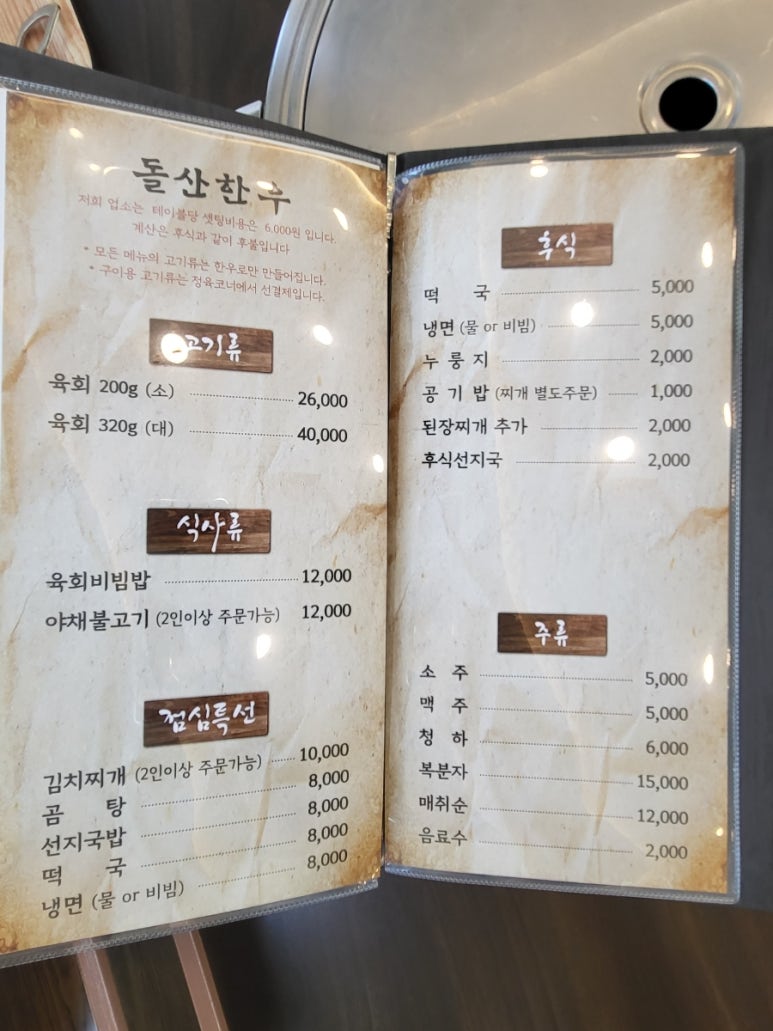 돌산한우
저희 업소는 테이블당 셋팅비용은 6,000원 입니다.
계산은 후식과 같이 후불입니다
* 모든 메뉴의 고기류는 한우로만 만들어집니다.
* 구이용 고기류는 정육코너에서 선결제입니다.
고기류
육회 200g (소) 26,000
육회 320g (대) 40,000
식사류
육회비빔밥 12,000
야채불고기 (2인이상 주문가능) 12,000
점심특선
김치찌개 (2인이상 주문가능) 10,000
곰탕 8,000
선지국밥 8,000
떡국 8,000
냉면 (물 or 비빔) 8,000
후식
떡국 5,000
냉면 (물 or 비빔) 5,000
누룽지 2,000
공기밥 (찌개 별도주문) 1,000
된장찌개 추가 2,000
후식선지국 2,000
주류
소주 5,000
맥주 5,000
청하 6,000
복분자 15,000
매취순 12,000
음료수 2,000